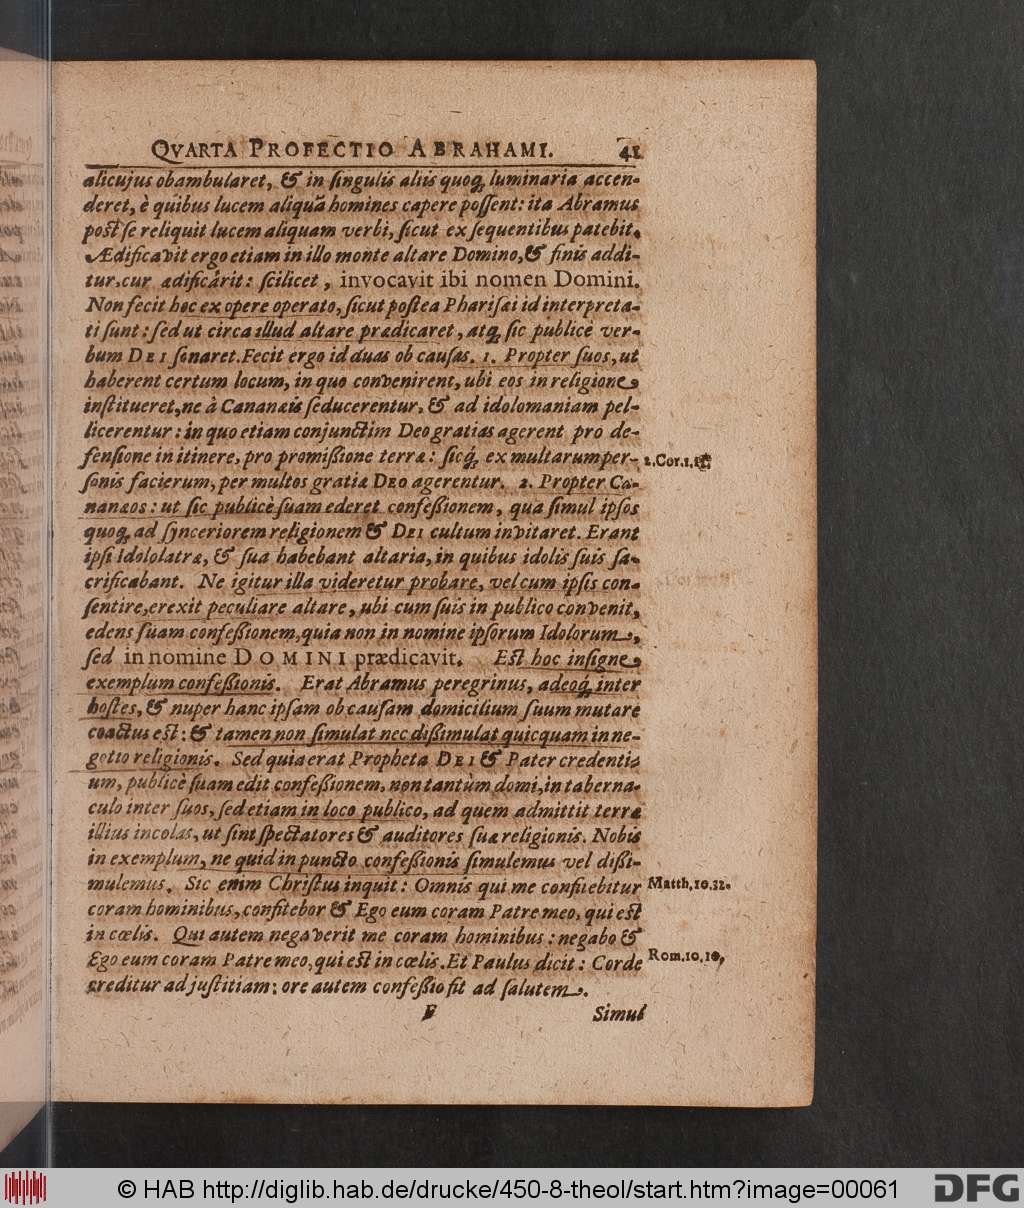 QVARTA PROFECTIO ABRAHAMI. 41
alicujus obambularet, & in singulis aliis quoq; luminaria accen-
deret, è quibus lucem aliquã homines capere possent: ita Abramus
post se reliquit lucem aliquam verbi, sicut ex sequentibus patebit.
Ædificavit ergo etiam in illo monte altare Domino, & finis addi-
tur, cur ædificârit: scilicet, invocavit ibi nomen Domini.
Non fecit hoc ex opere operato, sicut postea Pharisæi id interpreta-
ti sunt: sed ut circa illud altare prædicaret, atq; sic publicè ver-
bum DEI sonaret. Fecit ergo id duas ob causas. 1. Propter suos, ut
haberent certum locum, in quo convenirent, ubi eos in religione
institueret, ne à Cananæis seducerentur, & ad idolomaniam pel-
licerentur: in quo etiam conjunctim Deo gratias agerent pro de-
fensione in itinere, pro promissione terræ: sicq; ex multarum per-
sonis facierum, per multos gratiæ DEO agerentur. 2. Propter Ca-
nanæos: ut sic publicè suam ederet confessionem, qua simul ipsos
quoq; ad synceriorem religionem & DEI cultum invitaret. Erant
ipsi Idololatræ, & sua habebant altaria, in quibus idolis suis sa-
crificabant. Ne igitur illa videretur probare, vel cum ipsis con-
sentire, erexit peculiare altare, ubi cum suis in publico convenit,
edens suam confessionem, quia non in nomine ipsorum Idolorum,
sed in nomine DOMINI prædicavit. Est hoc insigne
exemplum confessionis. Erat Abramus peregrinus, adeoq; inter
hostes, & nuper hanc ipsam ob causam domicilium suum mutare
coactus est: & tamen non simulat nec dissimulat quicquam in ne-
gotio religionis. Sed quia erat Propheta DEI & Pater credenti-
um, publicè suam edit confessionem, non tantùm domi, in taberna-
culo inter suos, sed etiam in loco publico, ad quem admittit terræ
illius incolas, ut sint spectatores & auditores suæ religionis. Nobis
in exemplum, ne quid in puncto confessionis simulemus vel dissi-
mulemus. Sic enim Christus inquit: Omnis qui me confitebitur
coram hominibus, confitebor & Ego eum coram Patre meo, qui est
in cœlis. Qui autem negaverit me coram hominibus: negabo &
Ego eum coram Patre meo, qui est in cœlis. Et Paulus dicit: Corde
creditur ad justitiam: ore autem confessio fit ad salutem.
F Simul
2. Cor. 1, 11.
Matth. 10. 32.
Rom. 10. 10,
© HAB http://diglib.hab.de/drucke/450-8-theol/start.htm?image=00061
DFG